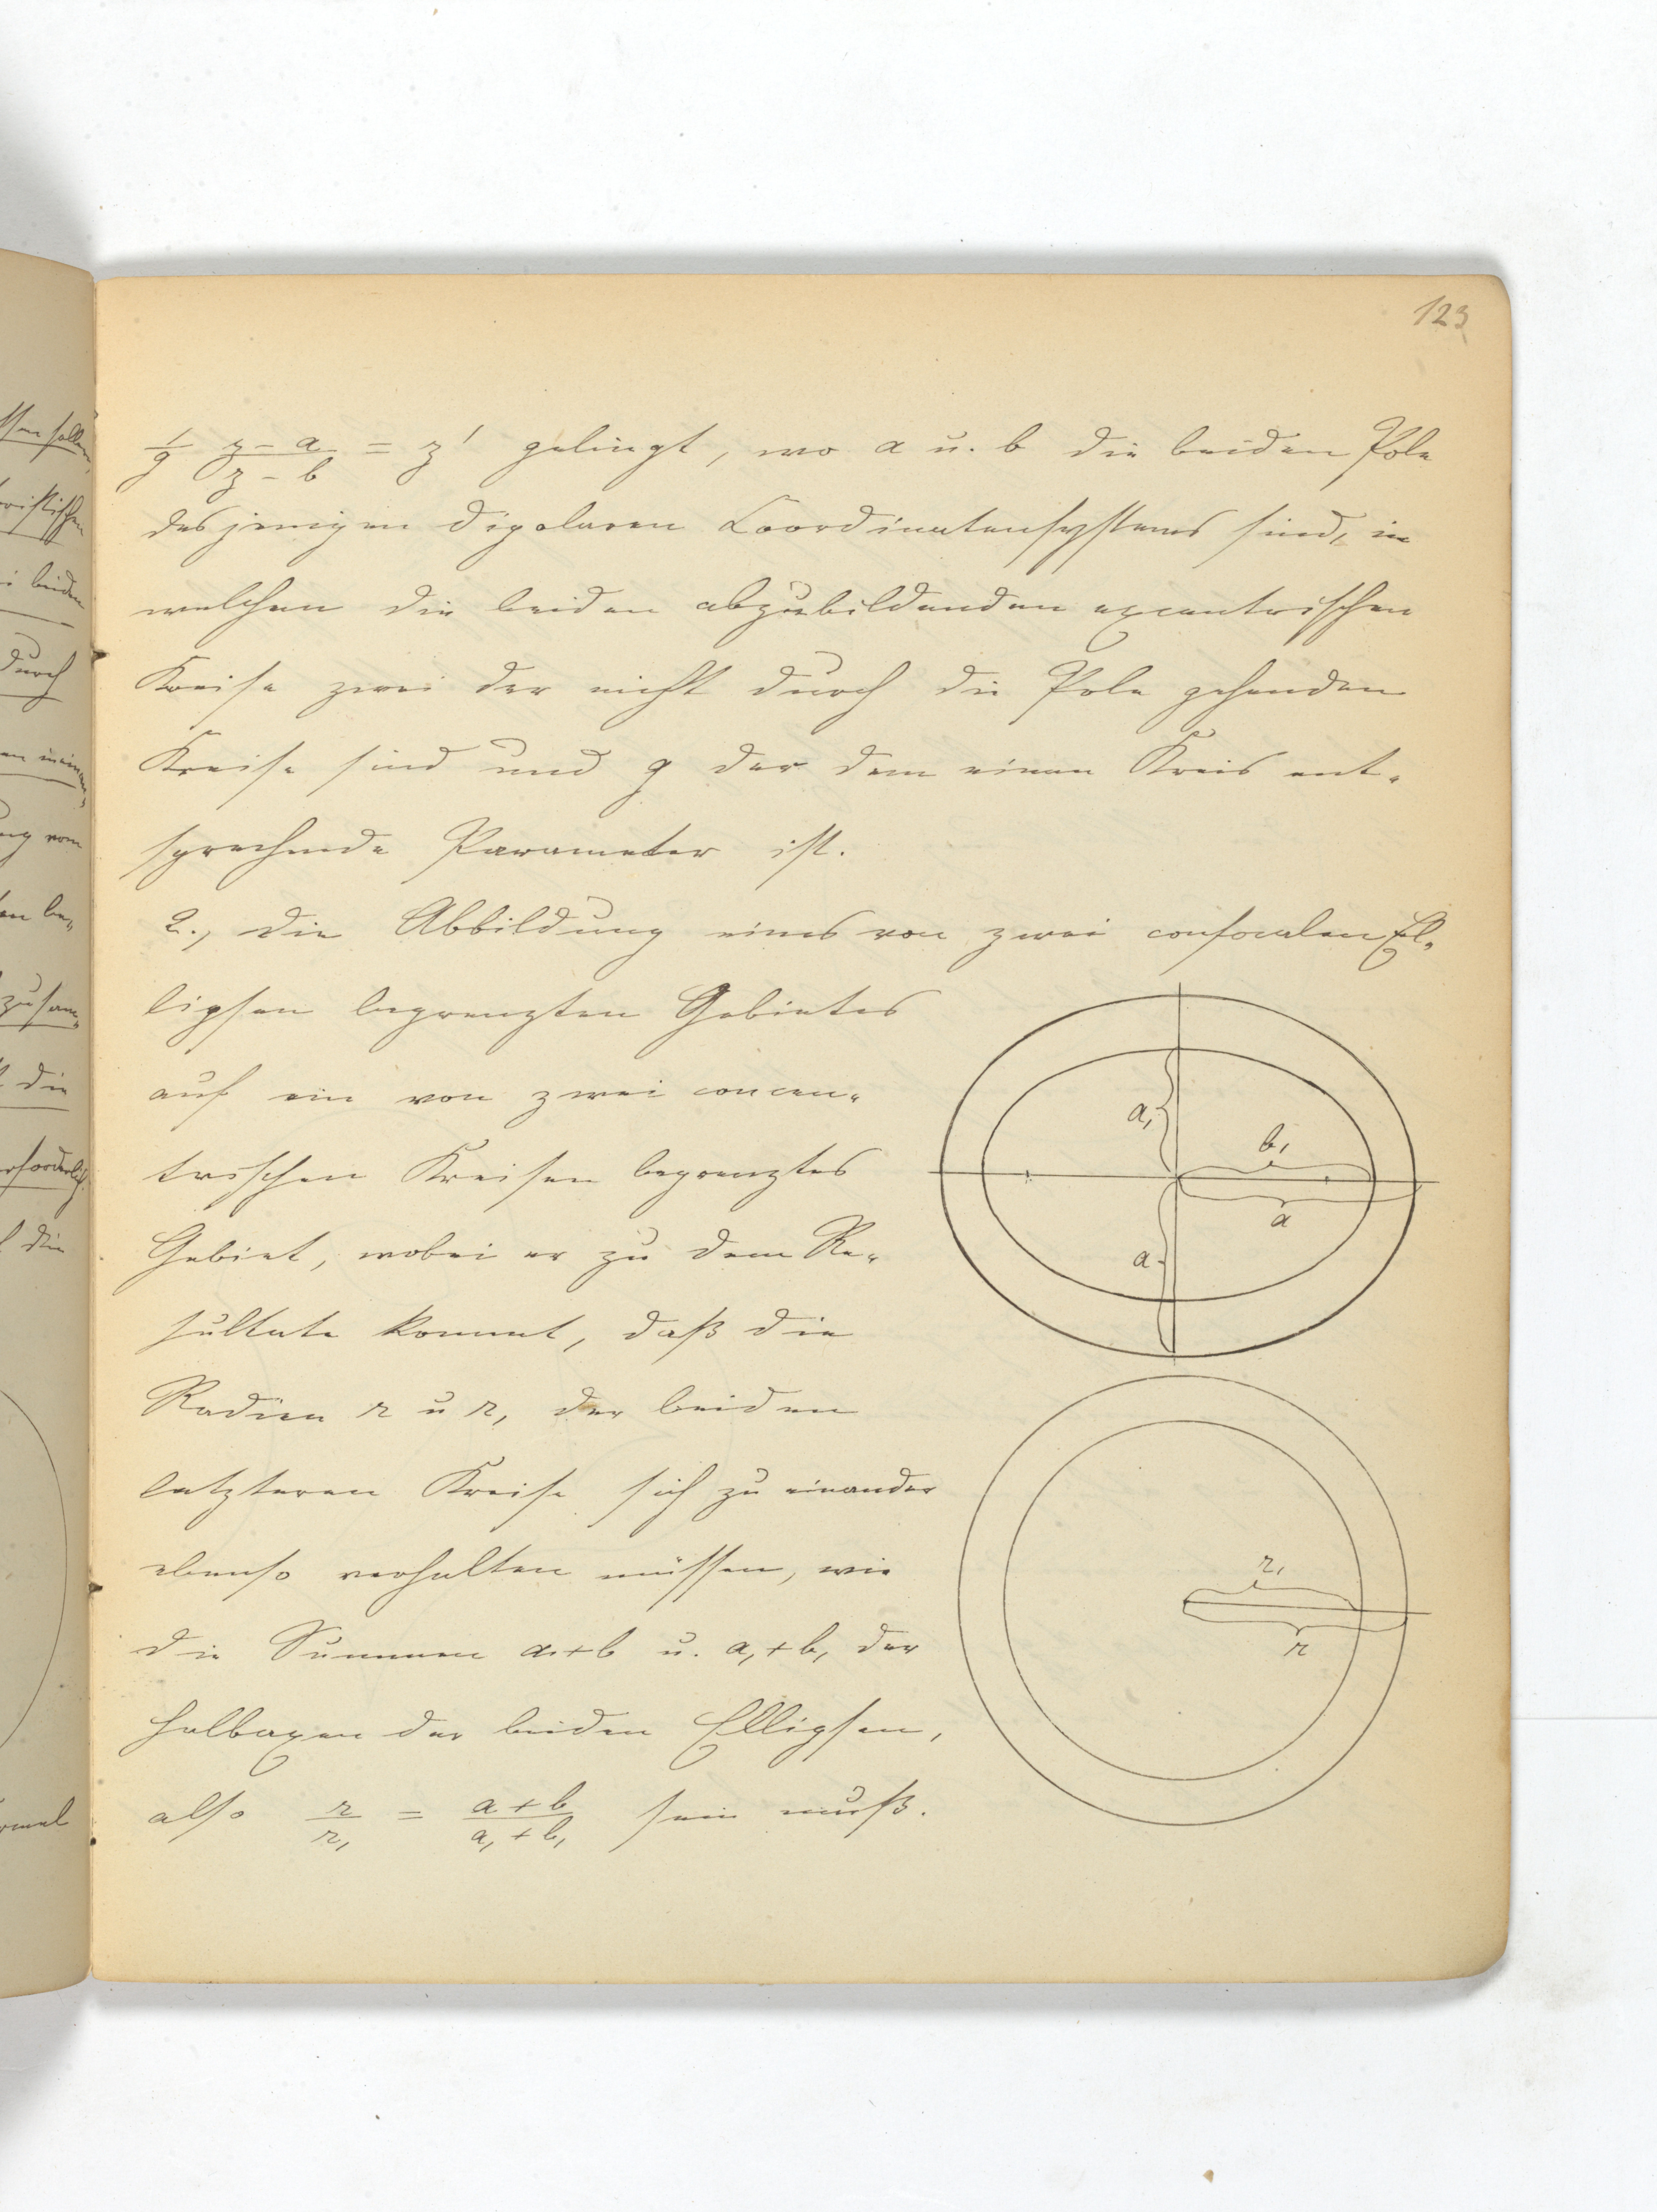 123
1/g (z - a)/(z - b) = z' gelingt, wo a u. b die beiden Pole
desjenigen dipolaren Coordinatensystems sind, in
welchem die beiden abzubildenden excentrischen
Kreise zwei der nicht durch die Pole gehenden
Kreise sind und g der dem einen Kreis ent-
sprechende Parameter ist.
2., die Abbildung eines von zwei confocalen El-
lipsen begrenzten Gebietes
auf ein von zwei concen-
trischen Kreisen begrenztes
Gebiet, wobei er zu dem Re-
sultate kommt, daß die
Radien r u r, der beiden
letzteren Kreise sich zu einander
ebenso verhalten müssen, wie
die Summen a+b u. a,+b, der
Halbaxen der beiden Ellipsen,
also r/r, = (a+b)/(a,+b,) sein muß.
a,
b,
a
a
r,
r
ssen sollen,
ristischen
i beiden
durch
ng vom
en be-
zusam-
die
erforderlich
die